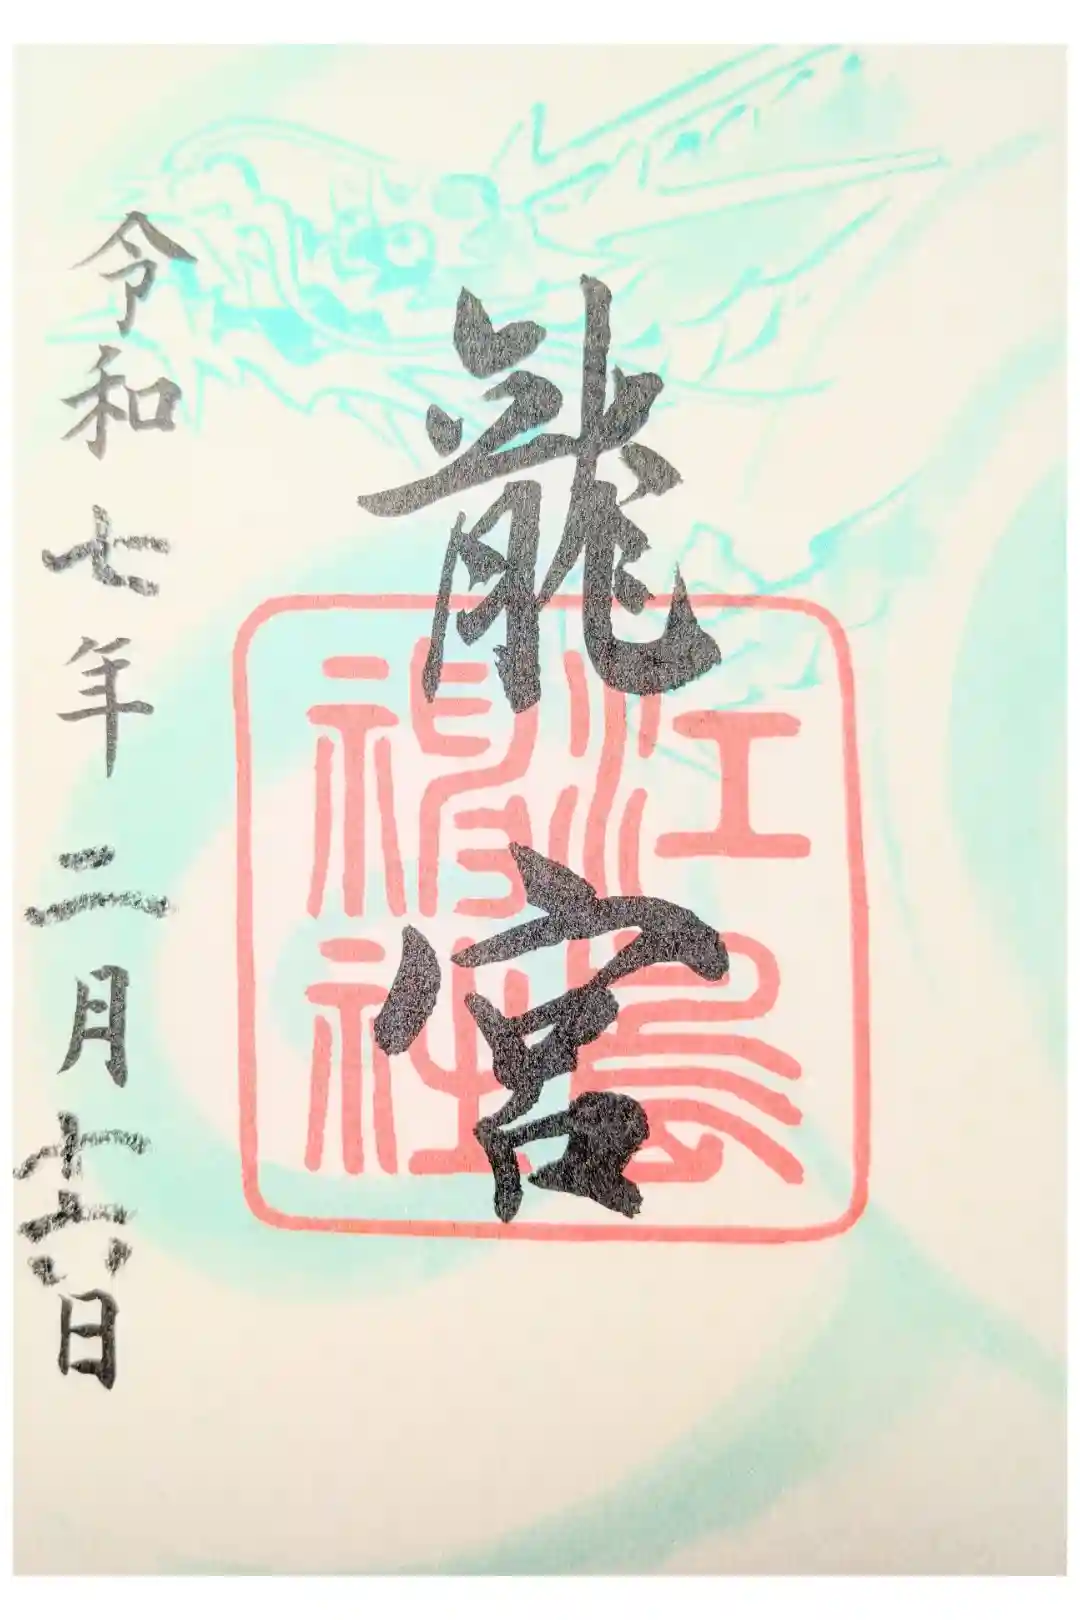 龍宮
江島神社
令和七年二月十六日